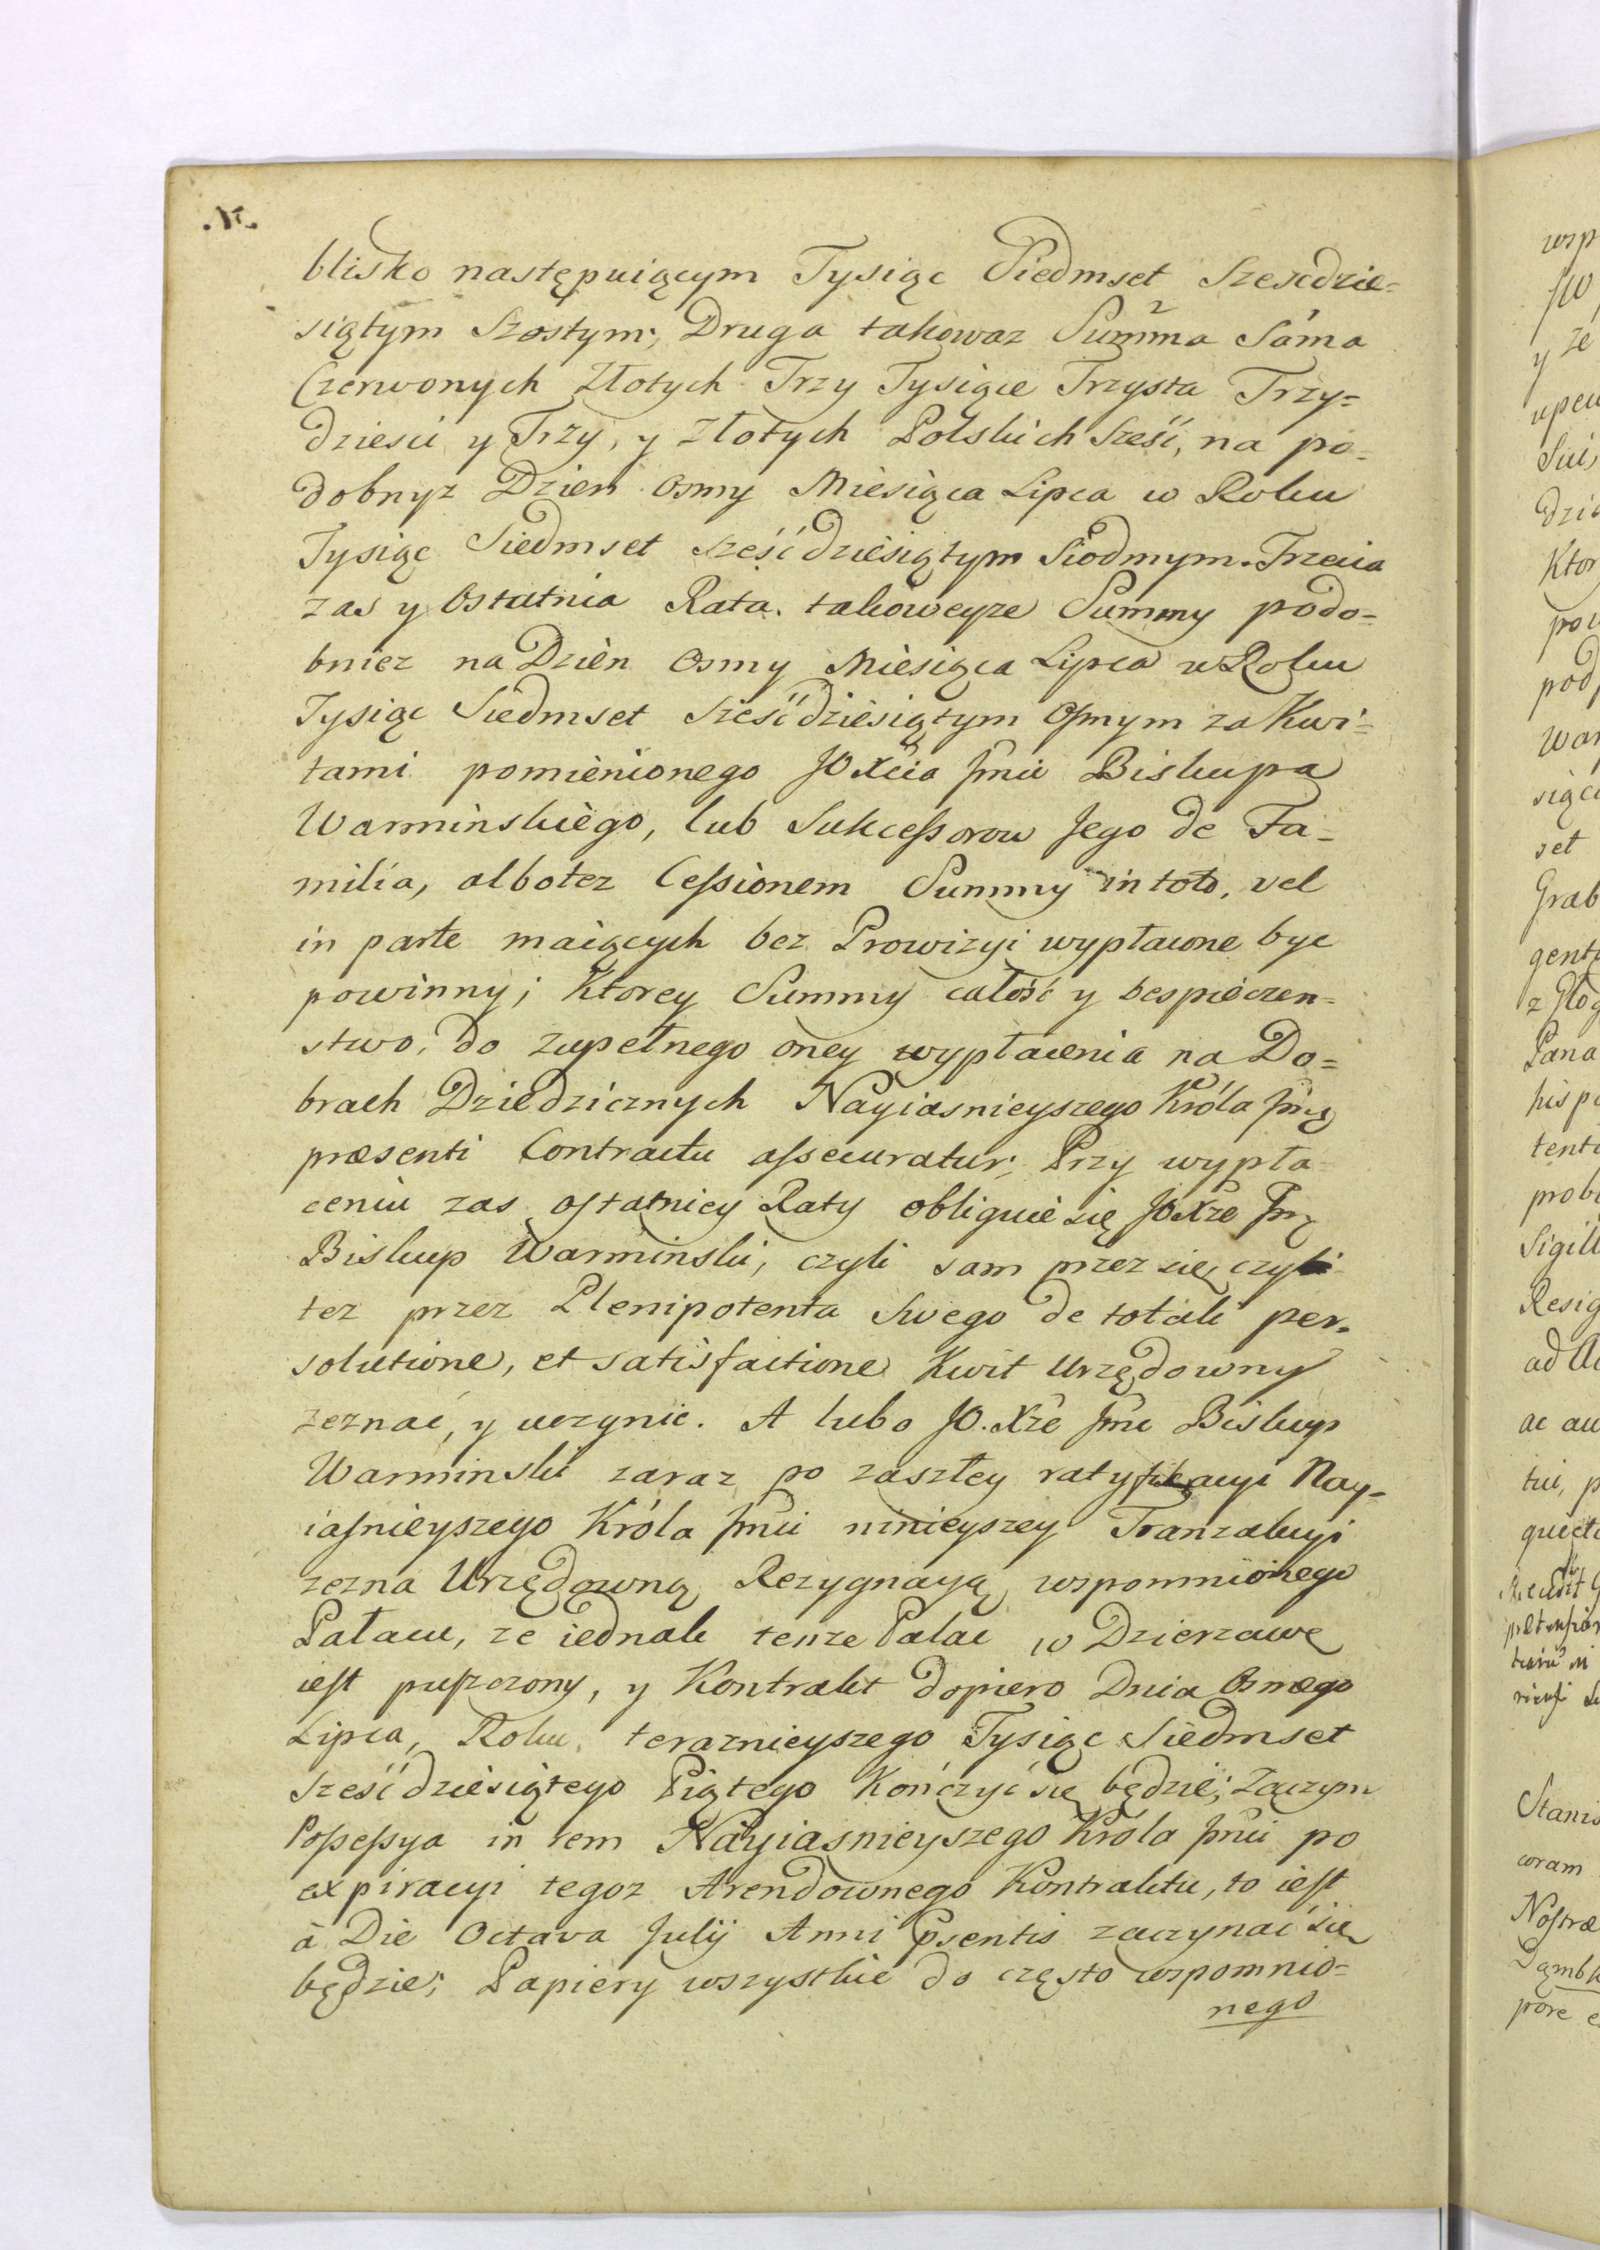 blisko następuiącym Tysiąc Siedmset Sześcdzie=
siątym Szostym; Druga takowaz Summa Sama
Czerwonych Złotych Trzy Tysiące Trzysta Trzy=
dziesci y Trzy, y Złotych Polskich Sześć, na po=
dobnyz Dzien Osmy Miesiąca Lipca w Roku
Tysiąc Siedmset sześćdziesiątym Siodmym. Trzecia
zas y Ostatnia Rata. takoweyze Summy podo=
bniez na Dzien Osmy Miesiąca Lipca w Roku
Tysiąc Siedmset sześćdziesiątym Osmym za Kwi=
tami pomienionego JOXcia Jmci Biskupa
Warminskiego, lub Sukcessorow Jego de Fa=
milia, albotez Cessionem Summy in toto, vel
in parte maiących bez Prowizyi wypłacone byc
powinny; Ktorey Summy całość y bespieczen=
stwo, do zupełnego oney wypłacenia na Do=
brach Dziedzicznych Nayiasnieyszego Króla Jmci
præsenti Contractu assecuratur; Przy wypła=
ceniu zas ostatniey Raty obliguie się JOXże Jmć
Biskup Warminski, czyli sam przez się, czyli
tez przez Plenipotenta Swego de totali per=
solutione, et satisfactione Kwit Urzędowny
zeznać, y uczynic. A lubo JO.Xże Jmc Biskup
Warminski zaraz po zaszłey ratyfikacyi Nay=
iasnieyszego Króla Jmci ninieyszey Tranzakcyi
zezna Urzędowną Rezygnacyą wspomnionego
Pałacu, ze iednak tenze Palac w Dzierzawę
iest puszczony, y Kontrakt dopiero Dnia Osmego
Lipca, Roku teraznieyszego Tysiąc Siedmset
sześćdziesiątego Piątego Kończyć się będzie; Zaczym
Possessya in rem Nayiasnieyszego Króla Jmci po
expiracyi tegoz Arendownego Kontraktu, to iest
à Die Octava Julij Anni Psentis zaczynać się
będzie; Papiery wszystkie do często wspomnio=
nego